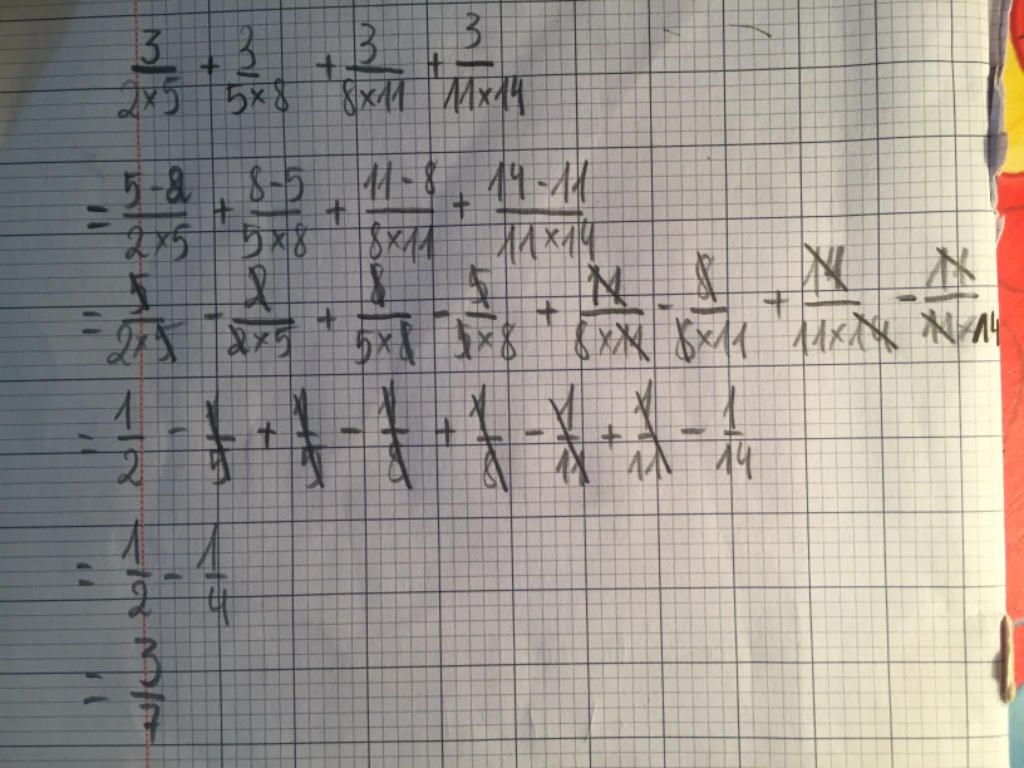 3/(2×5) + 3/(5×8) + 3/(8×11) + 3/(11×14)
= (5-2)/(2×5) + (8-5)/(5×8) + (11-8)/(8×11) + (14-11)/(11×14)
= 5/(2×5) - 2/(2×5) + 8/(5×8) - 5/(5×8) + 11/(8×11) - 8/(8×11) + 14/(11×14) - 11/(11×14)
= 1/2 - 1/5 + 1/5 - 1/8 + 1/8 - 1/11 + 1/11 - 1/14
= 1/2 - 1/4
= 3/7